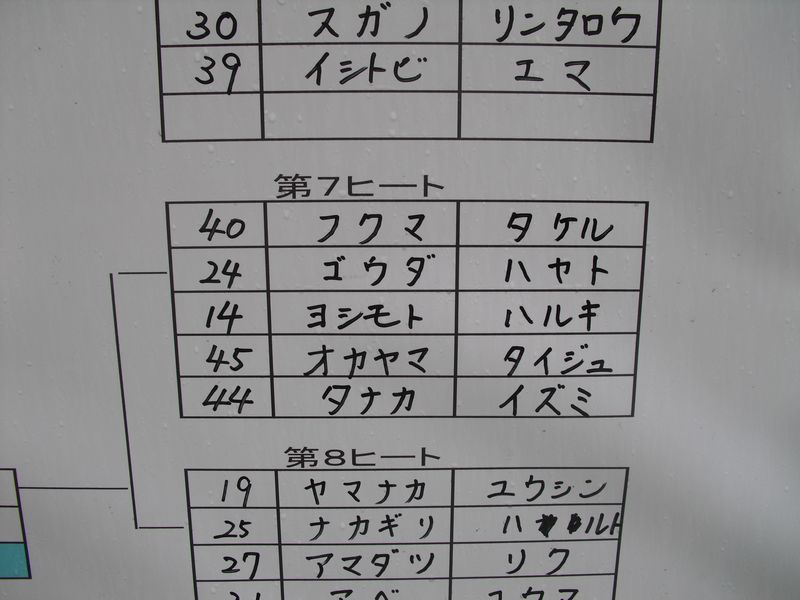 30 スガノ リンタロウ
39 イシトビ エマ
第7ヒート
40 フクマ タケル
24 ゴウダ ハヤト
14 ヨシモト ハルキ
45 オカヤマ タイジュ
44 タナカ イズミ
第8ヒート
19 ヤマナカ ユウシン
25 ナカギリ ハルト
27 アマダツ リク